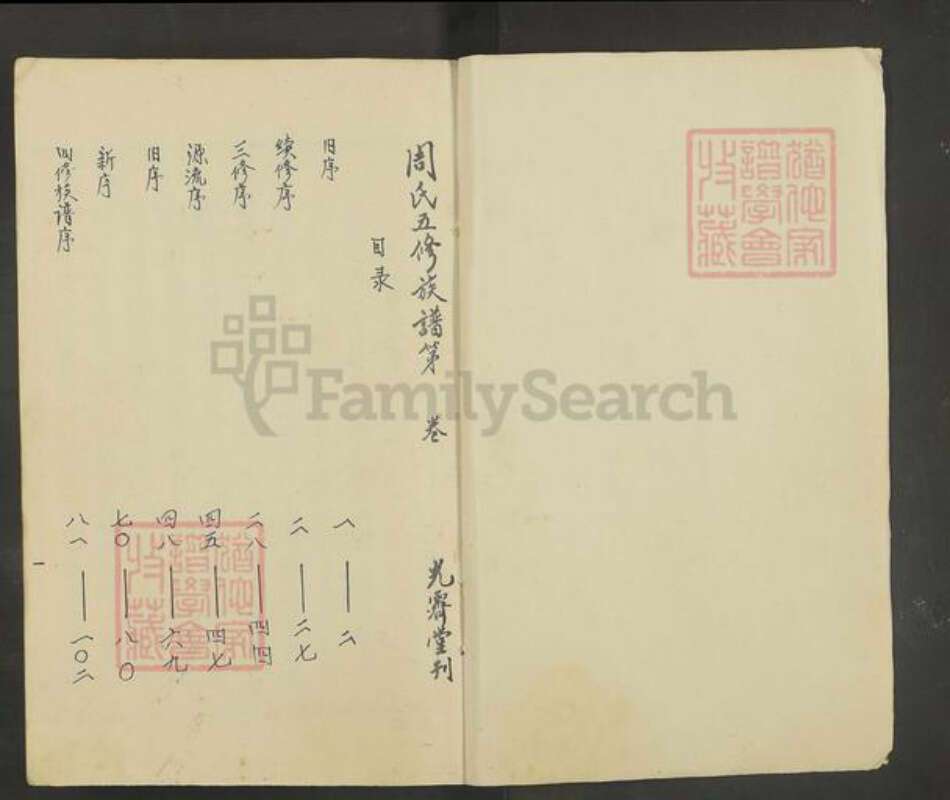 周氏五修族譜第 卷 光霽堂刊
目录
旧序 一——二
续修序 二——二七
三修序 二八——四四
源流序 四五——四七
旧序 四八——六九
新序 七〇——八〇
四修族谱序 八一——一〇二
FamilySearch
譜學會
收藏
譜學會
收藏